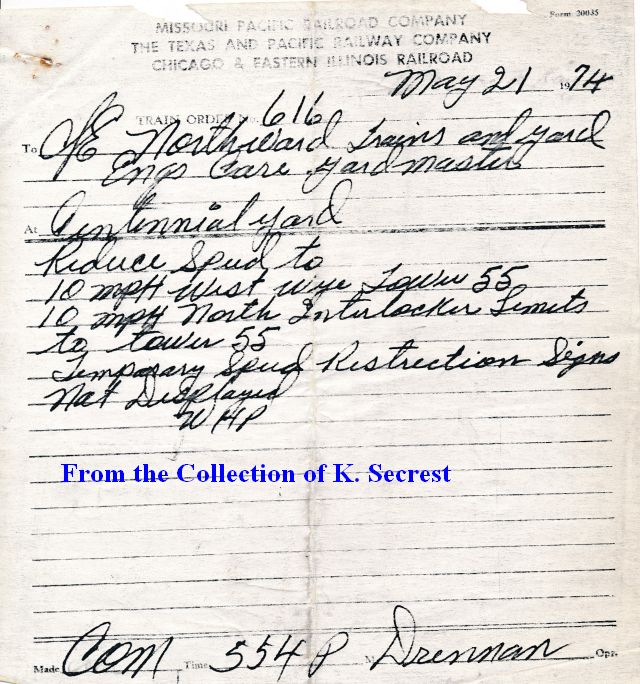 Form 20035
MISSOURI PACIFIC RAILROAD COMPANY
THE TEXAS AND PACIFIC RAILWAY COMPANY
CHICAGO & EASTERN ILLINOIS RAILROAD
May 21 1974
TRAIN ORDER No. 616
To C&E Northward Trains and Yard
Engs Care Yardmaster
At Centennial Yard
Reduce Speed to
10 mpH West Wye Tower 55
10 mpH North Interlocker Limits
to Tower 55
Temporary Speed Restriction Signs
Not Displayed
WHP
From the Collection of K. Secrest
Made Com Time 554 P M Drennan Opr.